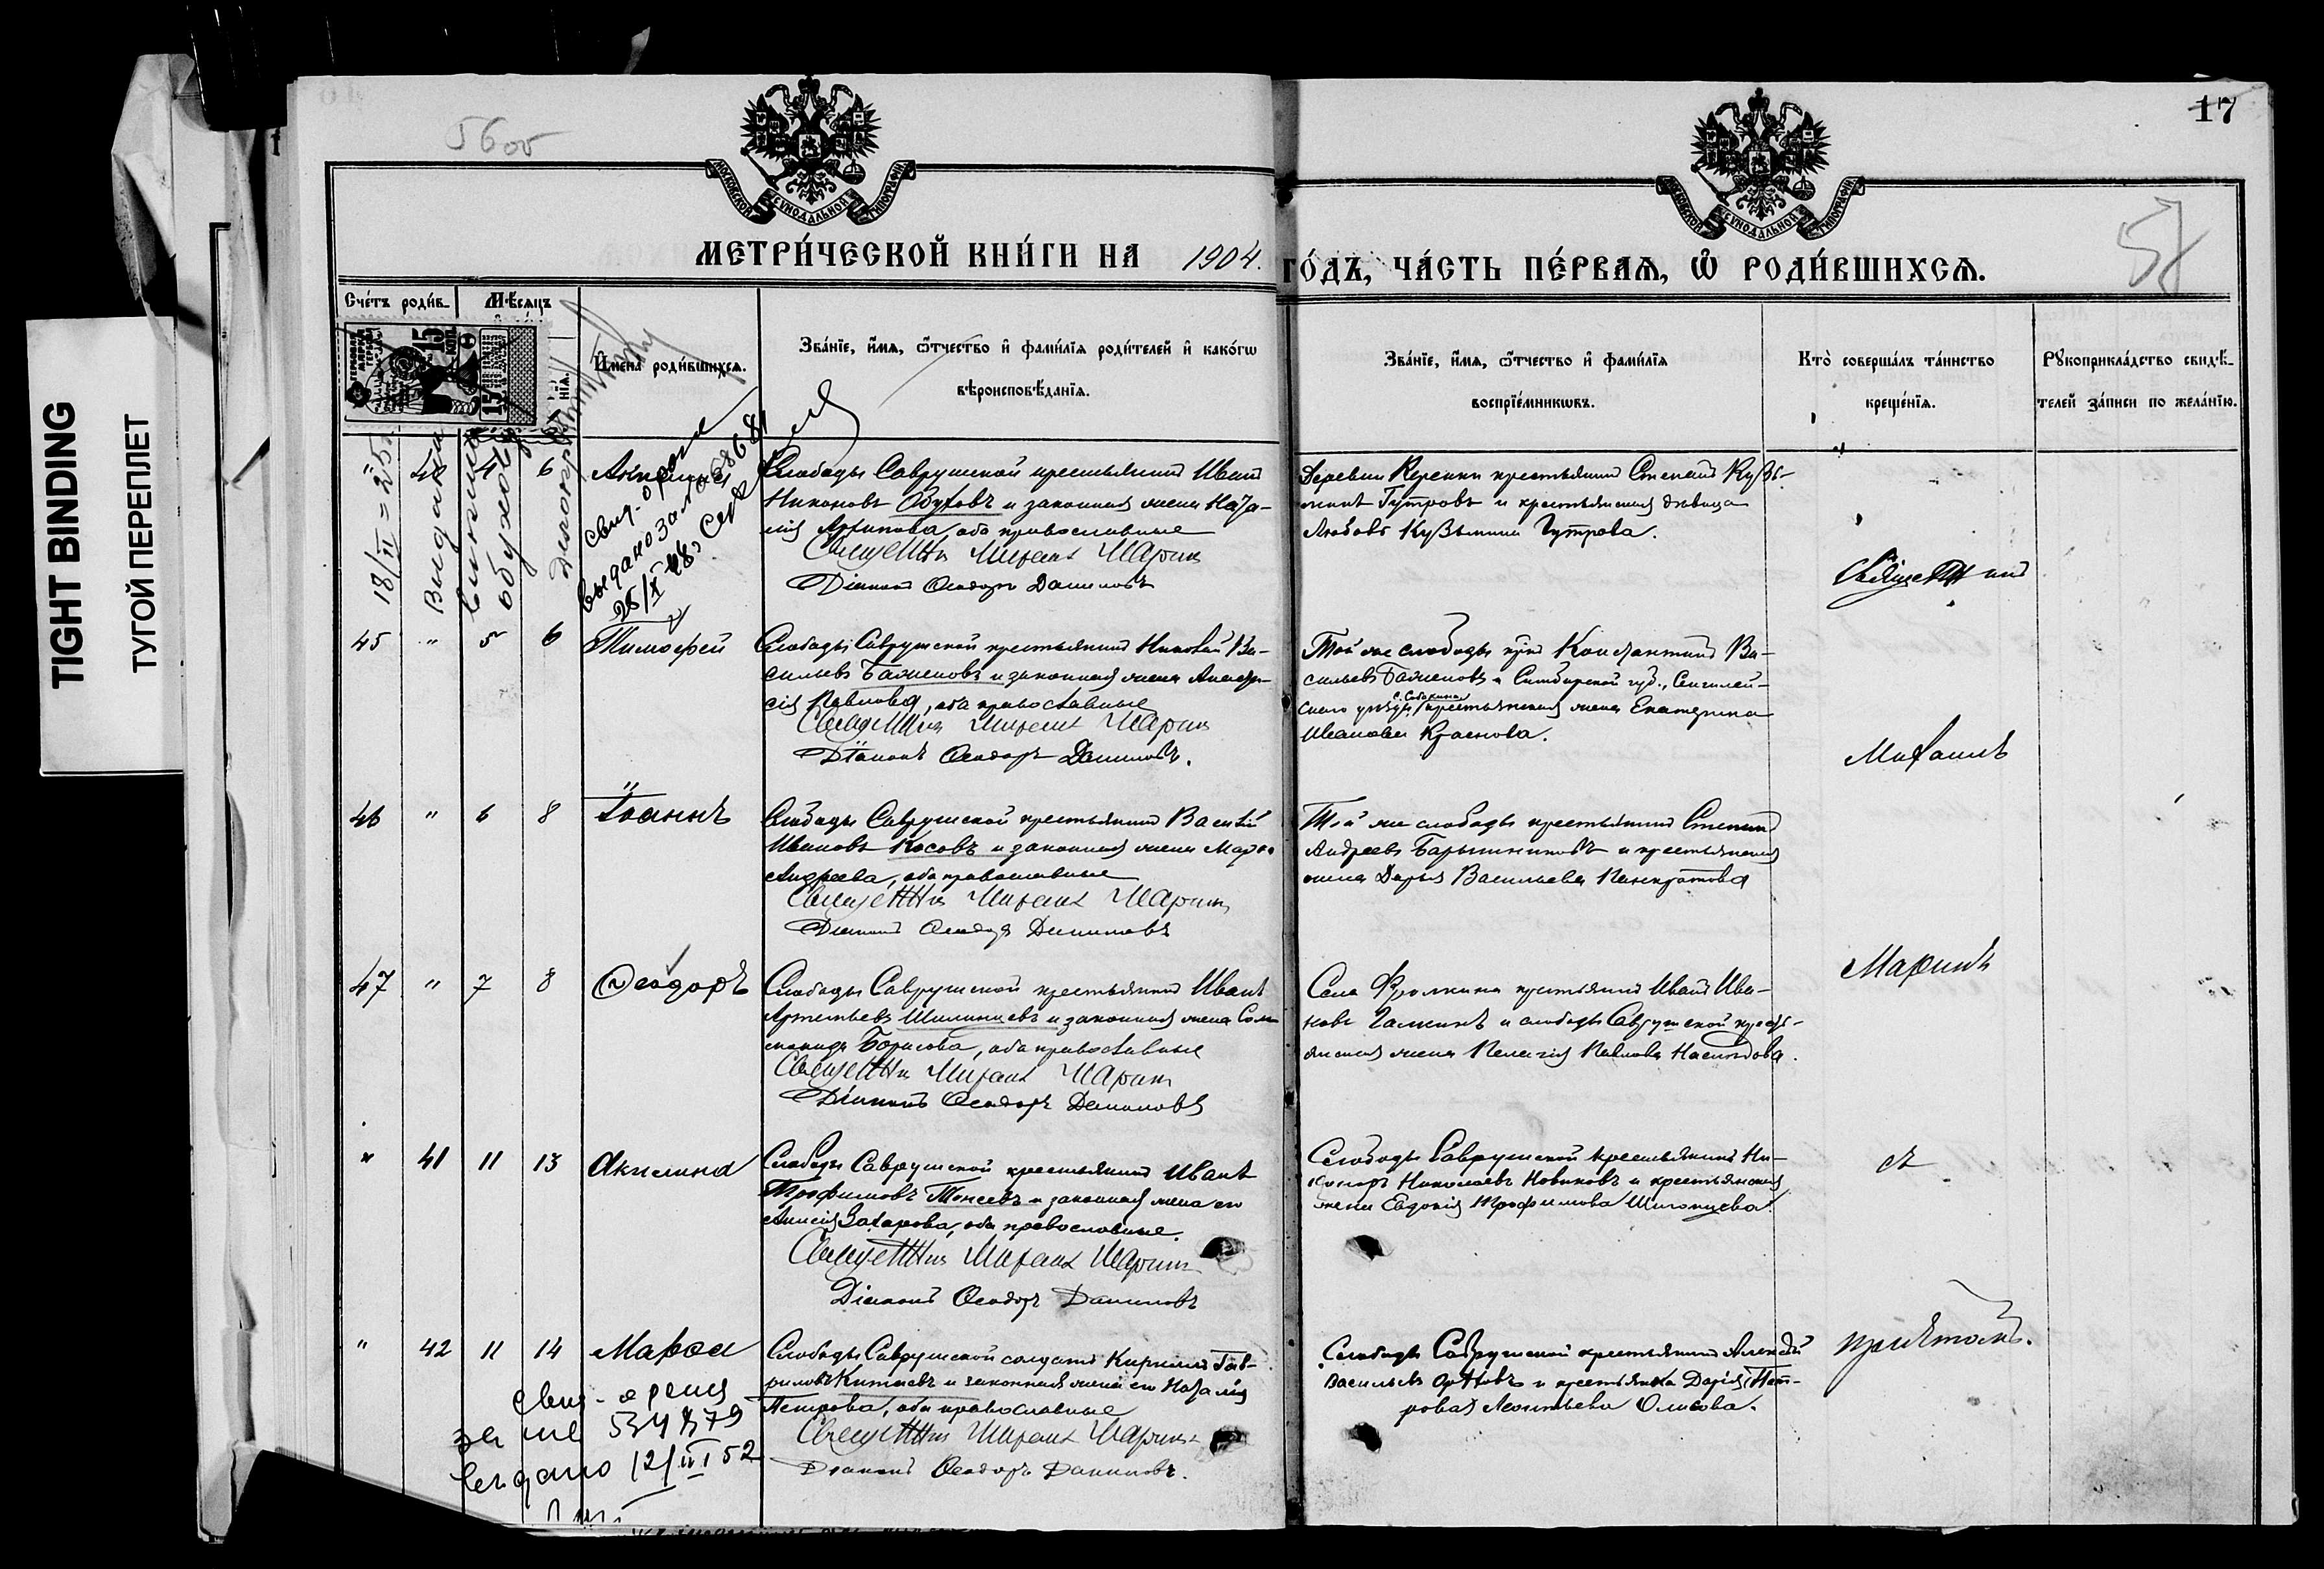 TIGHT BINDING
ТУГОЙ ПЕРЕПЛЕТ
56 об
17
57
МОСКОВСКОЙ СѴНОДАЛЬНОЙ ТИПОГРАФІИ
МОСКОВСКОЙ СѴНОДАЛЬНОЙ ТИПОГРАФІИ
МЕТРИ́ЧЕСКОЙ КНИ́ГИ НА 1904.
ГО́ДЪ, ЧА́СТЬ ПЕ́РВАЯ, Ѿ РОДИ́ВШИХСЯ.
Сче́тъ роди́в-
Мѣ́сяцъ
И҆мена̀ роди́вшихся.
Зва́нїе, и҆́мя, ѻ҆́тчество и҆ фами́лїя роди́телей и҆ како́гѡ
вѣроисповѣ́данїя.
Зва́нїе, и҆́мя, ѻ҆́тчество и҆ фами́лїя
воспрїе́мникѡвъ.
Кто̀ соверша́лъ та́инство
креще́нїя.
Рꙋкоприкла́дство свидѣ́-
телей за́писи по жела́нїю.
15
КОП.
18/II = 25
4 6
свид-
выдано за №
25/X 48
Слободы Саврушской крестьянинъ Иванъ
Никоновъ Обуховъ и законная жена Ната-
лія Архипова, оба православные
Священникъ Михаилъ Маринъ
Діаконъ Ѳеодоръ Даниловъ
Деревни Керенки крестьянинъ Степанъ Кузь-
минъ Гутровъ и крестьянская дѣвица
Любовь Кузьмина Гутрова.
Священникъ
45 " 5 6 Тимофей
Слободы Саврушской крестьянинъ Николай Ва-
сильевъ Баженовъ и законная жена Анаста-
сія Павлова, оба православные
Священникъ Михаилъ Маринъ
Діаконъ Ѳеодоръ Даниловъ.
Той же слободы кр-нъ Константинъ Ва-
сильевъ Баженовъ и Симбирской губ., Сенгилей-
скаго уѣзда, с. Собакина крестьянская жена Екатерина
Иванова Краснова.
Михаилъ
46 " 6 8 Іоаннъ
Слободы Саврушской крестьянинъ Василій
Ивановъ Косовъ и законная жена Марѳа
Андреева, оба православные
Священникъ Михаилъ Маринъ
Діаконъ Ѳеодоръ Даниловъ
Той же слободы крестьянинъ Степанъ
Андреевъ Барышниковъ и крестьянская
жена Дарья Васильева Панкратова
Маринъ
47 " 7 8 Ѳеодоръ
Слободы Саврушской крестьянинъ Иванъ
Артемьевъ Шилинцевъ и законная жена Соло-
монида Борисова, оба православные
Священникъ Михаилъ Маринъ
Діаконъ Ѳеодоръ Даниловъ
Села Фролкина крестьянинъ Иванъ Ива-
новъ Галкинъ и слободы Саврушской кресть-
янская жена Пелагія Павлова
" 41 11 13 Акилина
Слободы Саврушской крестьянинъ Иванъ
Трофимовъ Тонеевъ и законная жена его
Анисія Захарова, оба православные.
Священникъ Михаилъ Маринъ
Діаконъ Ѳеодоръ Даниловъ
Слободы Саврушской крестьянинъ Ни-
каноръ Николаевъ Новиковъ и крестьянская
жена Евдокія Трофимова Шилинцева.
съ
" 42 11 14 Марѳа
Слободы Саврушской солдатъ Кириллъ Гав-
риловъ Китаевъ и законная жена его Наталія
Петрова, оба православные
Священникъ Михаилъ Маринъ
Діаконъ Ѳеодоръ Даниловъ.
Слободы Саврушской крестьянинъ Алексѣй
Васильевъ и крестьянка Дарія
Леонтьева
причтомъ.
свид-
за №
выдано 12/III 52